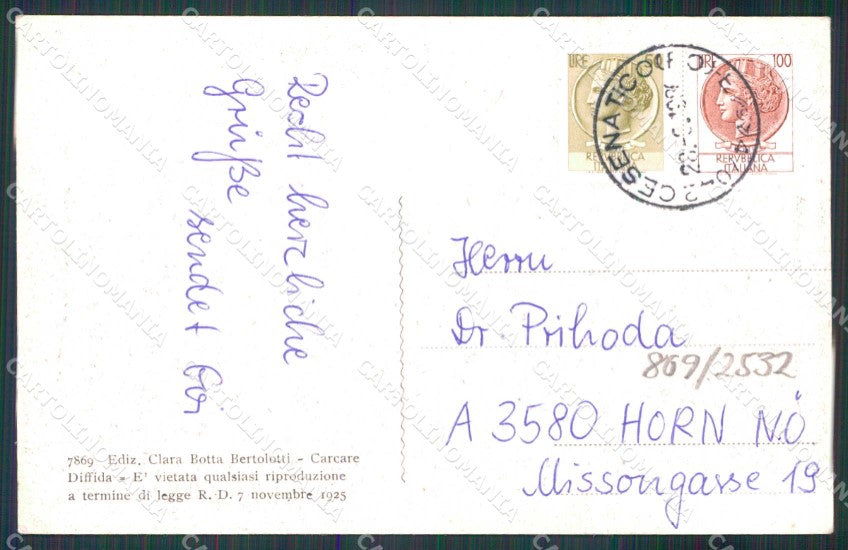 Recht herzliche
Grüße
sendet
7869 Ediz. Clara Botta Bertolotti - Carcare
Diffida - E' vietata qualsiasi riproduzione
a termine di legge R. D. 7 novembre 1925
LIRE 50
REPVBBLICA
ITALIANA
LIRE 100
REPVBBLICA
ITALIANA
CESENATICO
Herrn
Dr. Prihoda
869/2532
A 3580 HORN N.Ö.
Missongasse 19
CARTOLINOMANIA